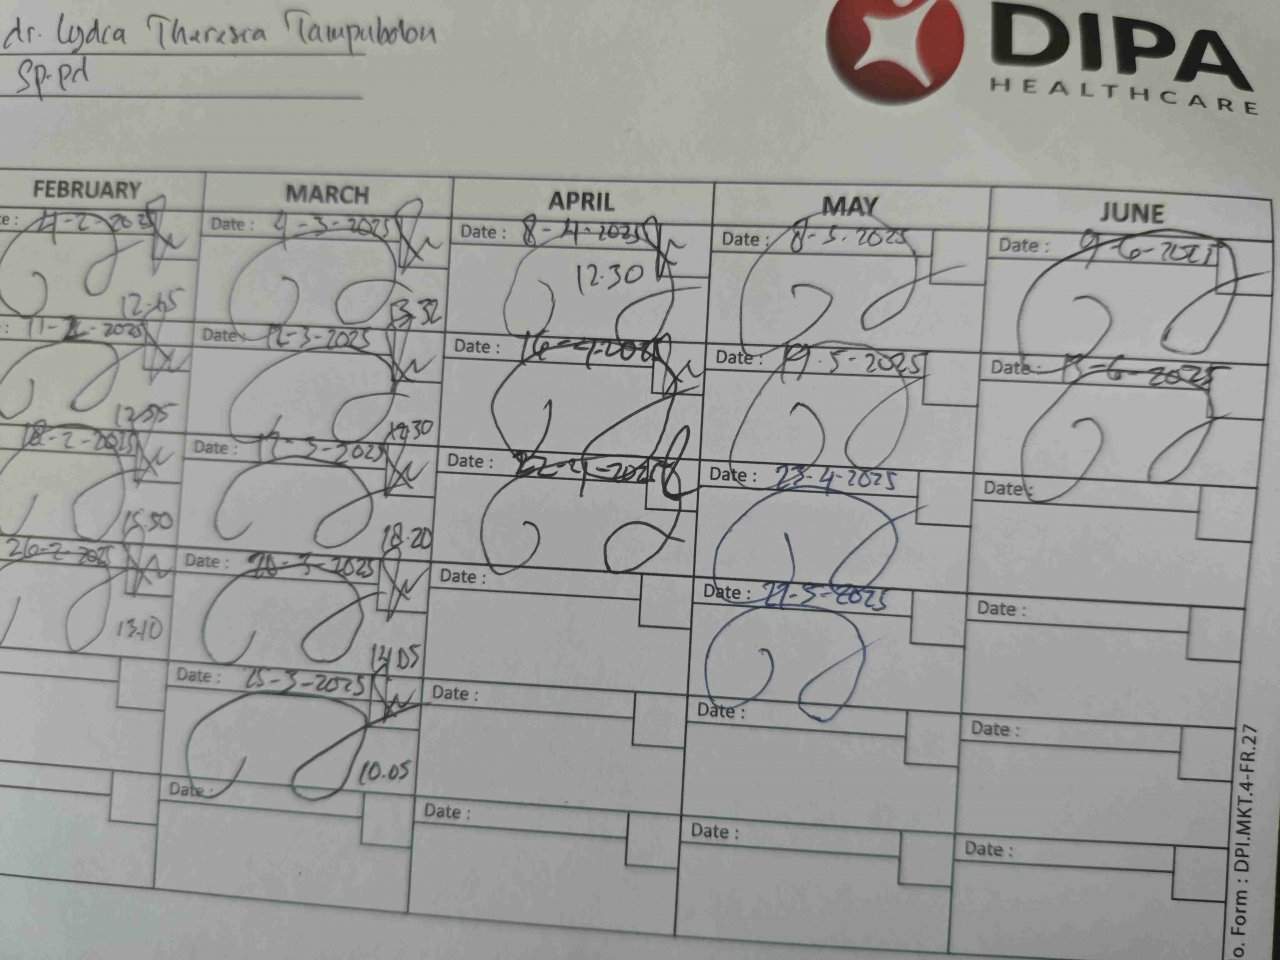 dr. Lydia Theresia Tampubolon
Sp-pd
DIPA
HEALTHCARE
FEBRUARY MARCH APRIL MAY JUNE
e: 4-2-2025 Date : 4-3-2025 Date : 8-4-2025 Date : 8-5-2025 Date : 9-6-2025
12.45 13.32 12.30
: 11-2-2025 Date : 12-3-2025 Date : 16-4-2025 Date : 19-5-2025 Date : 13-6-2025
12.55 12.30
18-2-2025 Date : 17-3-2025 Date : 22-4-2025 Date : 23-4-2025 Date :
15.50 18.20
26-2-2025 Date : 20-3-2025 Date : Date : 27-5-2025 Date :
13.10 14.05
Date : 25-3-2025 Date : Date : Date :
10.05
Date : Date : Date : Date :
o. Form : DPI.MKT.4-FR.27